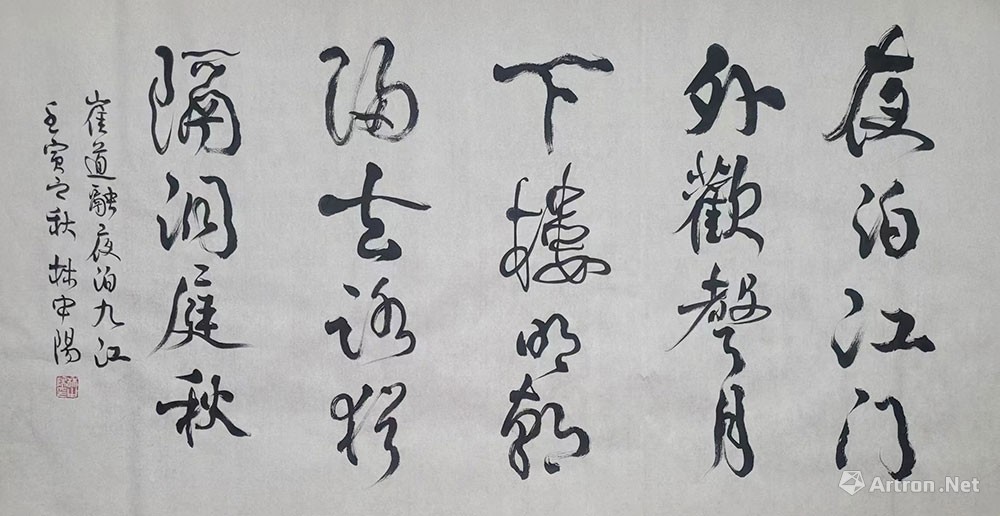 夜泊江门
外歡聲月
下樓明朝
歸去路猶
隔洞庭秋
崔道融夜泊九江
壬寅之秋 林中陽
Artron.Net